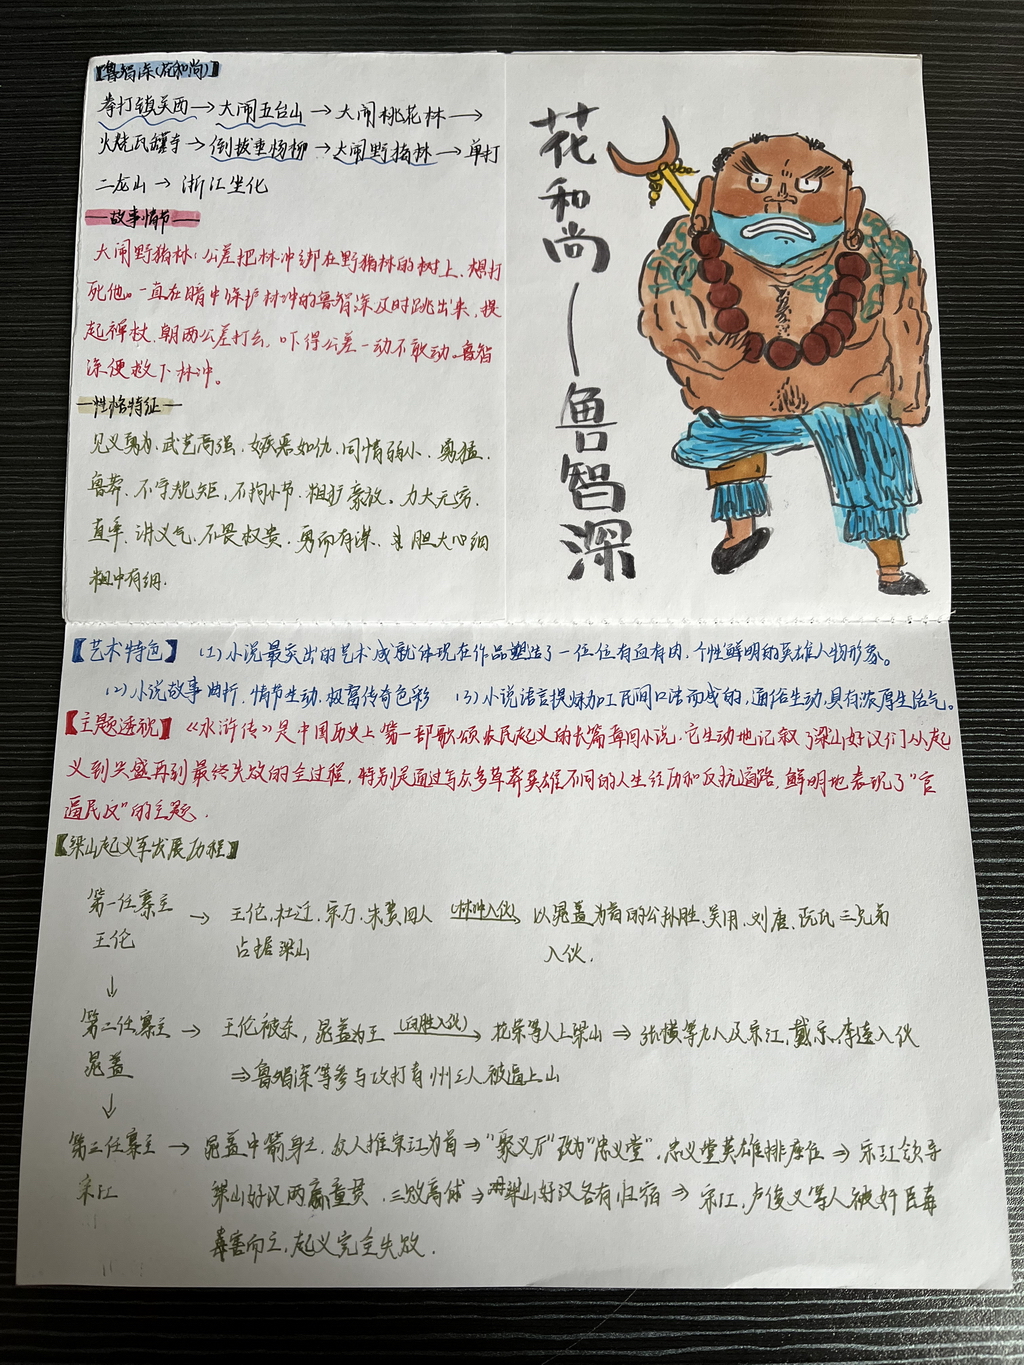 【鲁智深(花和尚)】
拳打镇关西→大闹五台山→大闹桃花林→
火烧瓦罐寺→倒拔垂杨柳→大闹野猪林→单打
二龙山→浙江坐化
—故事情节—
大闹野猪林:公差把林冲绑在野猪林的树上,想打
死他。一直在暗中保护林冲的鲁智深及时跳出来,提
起禅杖,朝两公差打去,吓得公差一动不敢动。鲁智
深便救下林冲。
—性格特征—
见义勇为、武艺高强、嫉恶如仇、同情弱小、勇猛、
鲁莽、不守规矩,不拘小节、粗犷豪放。力大无穷、
直率、讲义气、不畏权贵、勇而有谋、胆大心细
粗中有细.
花和尚—鲁智深
【艺术特色】 (1)小说最突出的艺术成就体现在作品塑造了一位位有血有肉,个性鲜明的英雄人物形象。
(2)小说故事曲折,情节生动,极富传奇色彩 (3)小说语言提炼加工民间口语而成的,通俗生动,具有浓厚生活气。
【主题透视】《水浒传》是中国历史上第一部歌颂农民起义的长篇章回小说,它生动地记叙了梁山好汉们从起
义到兴盛再到最终失败的全过程,特别是通过写众多草莽英雄不同的人生经历和反抗道路,鲜明地表现了"官
逼民反"的主题.
【梁山起义军发展历程】
第一任寨主 → 王伦、杜迁、宋万、朱贵四人 (林冲入伙)→ 以晁盖为首的公孙胜、吴用、刘唐、阮氏三兄弟
王伦 占据梁山 入伙.
↓
第二任寨主 → 王伦被杀,晁盖为王 (白胜入伙)→ 花荣等人上梁山 ⇒ 张横等九人及宋江,戴宗,李逵入伙
晁盖 ⇒鲁智深等参与攻打青州三人被逼上山
↓
第三任寨主 → 晁盖中箭身亡,众人推宋江为首⇒"聚义厅"改为"忠义堂",忠义堂英雄排座位 ⇒ 宋江领导
宋江 梁山好汉两赢童贯,三败高俅⇒梁山好汉各有归宿 ⇒ 宋江,卢俊义等人被奸臣毒
毒害而亡,起义完全失败.